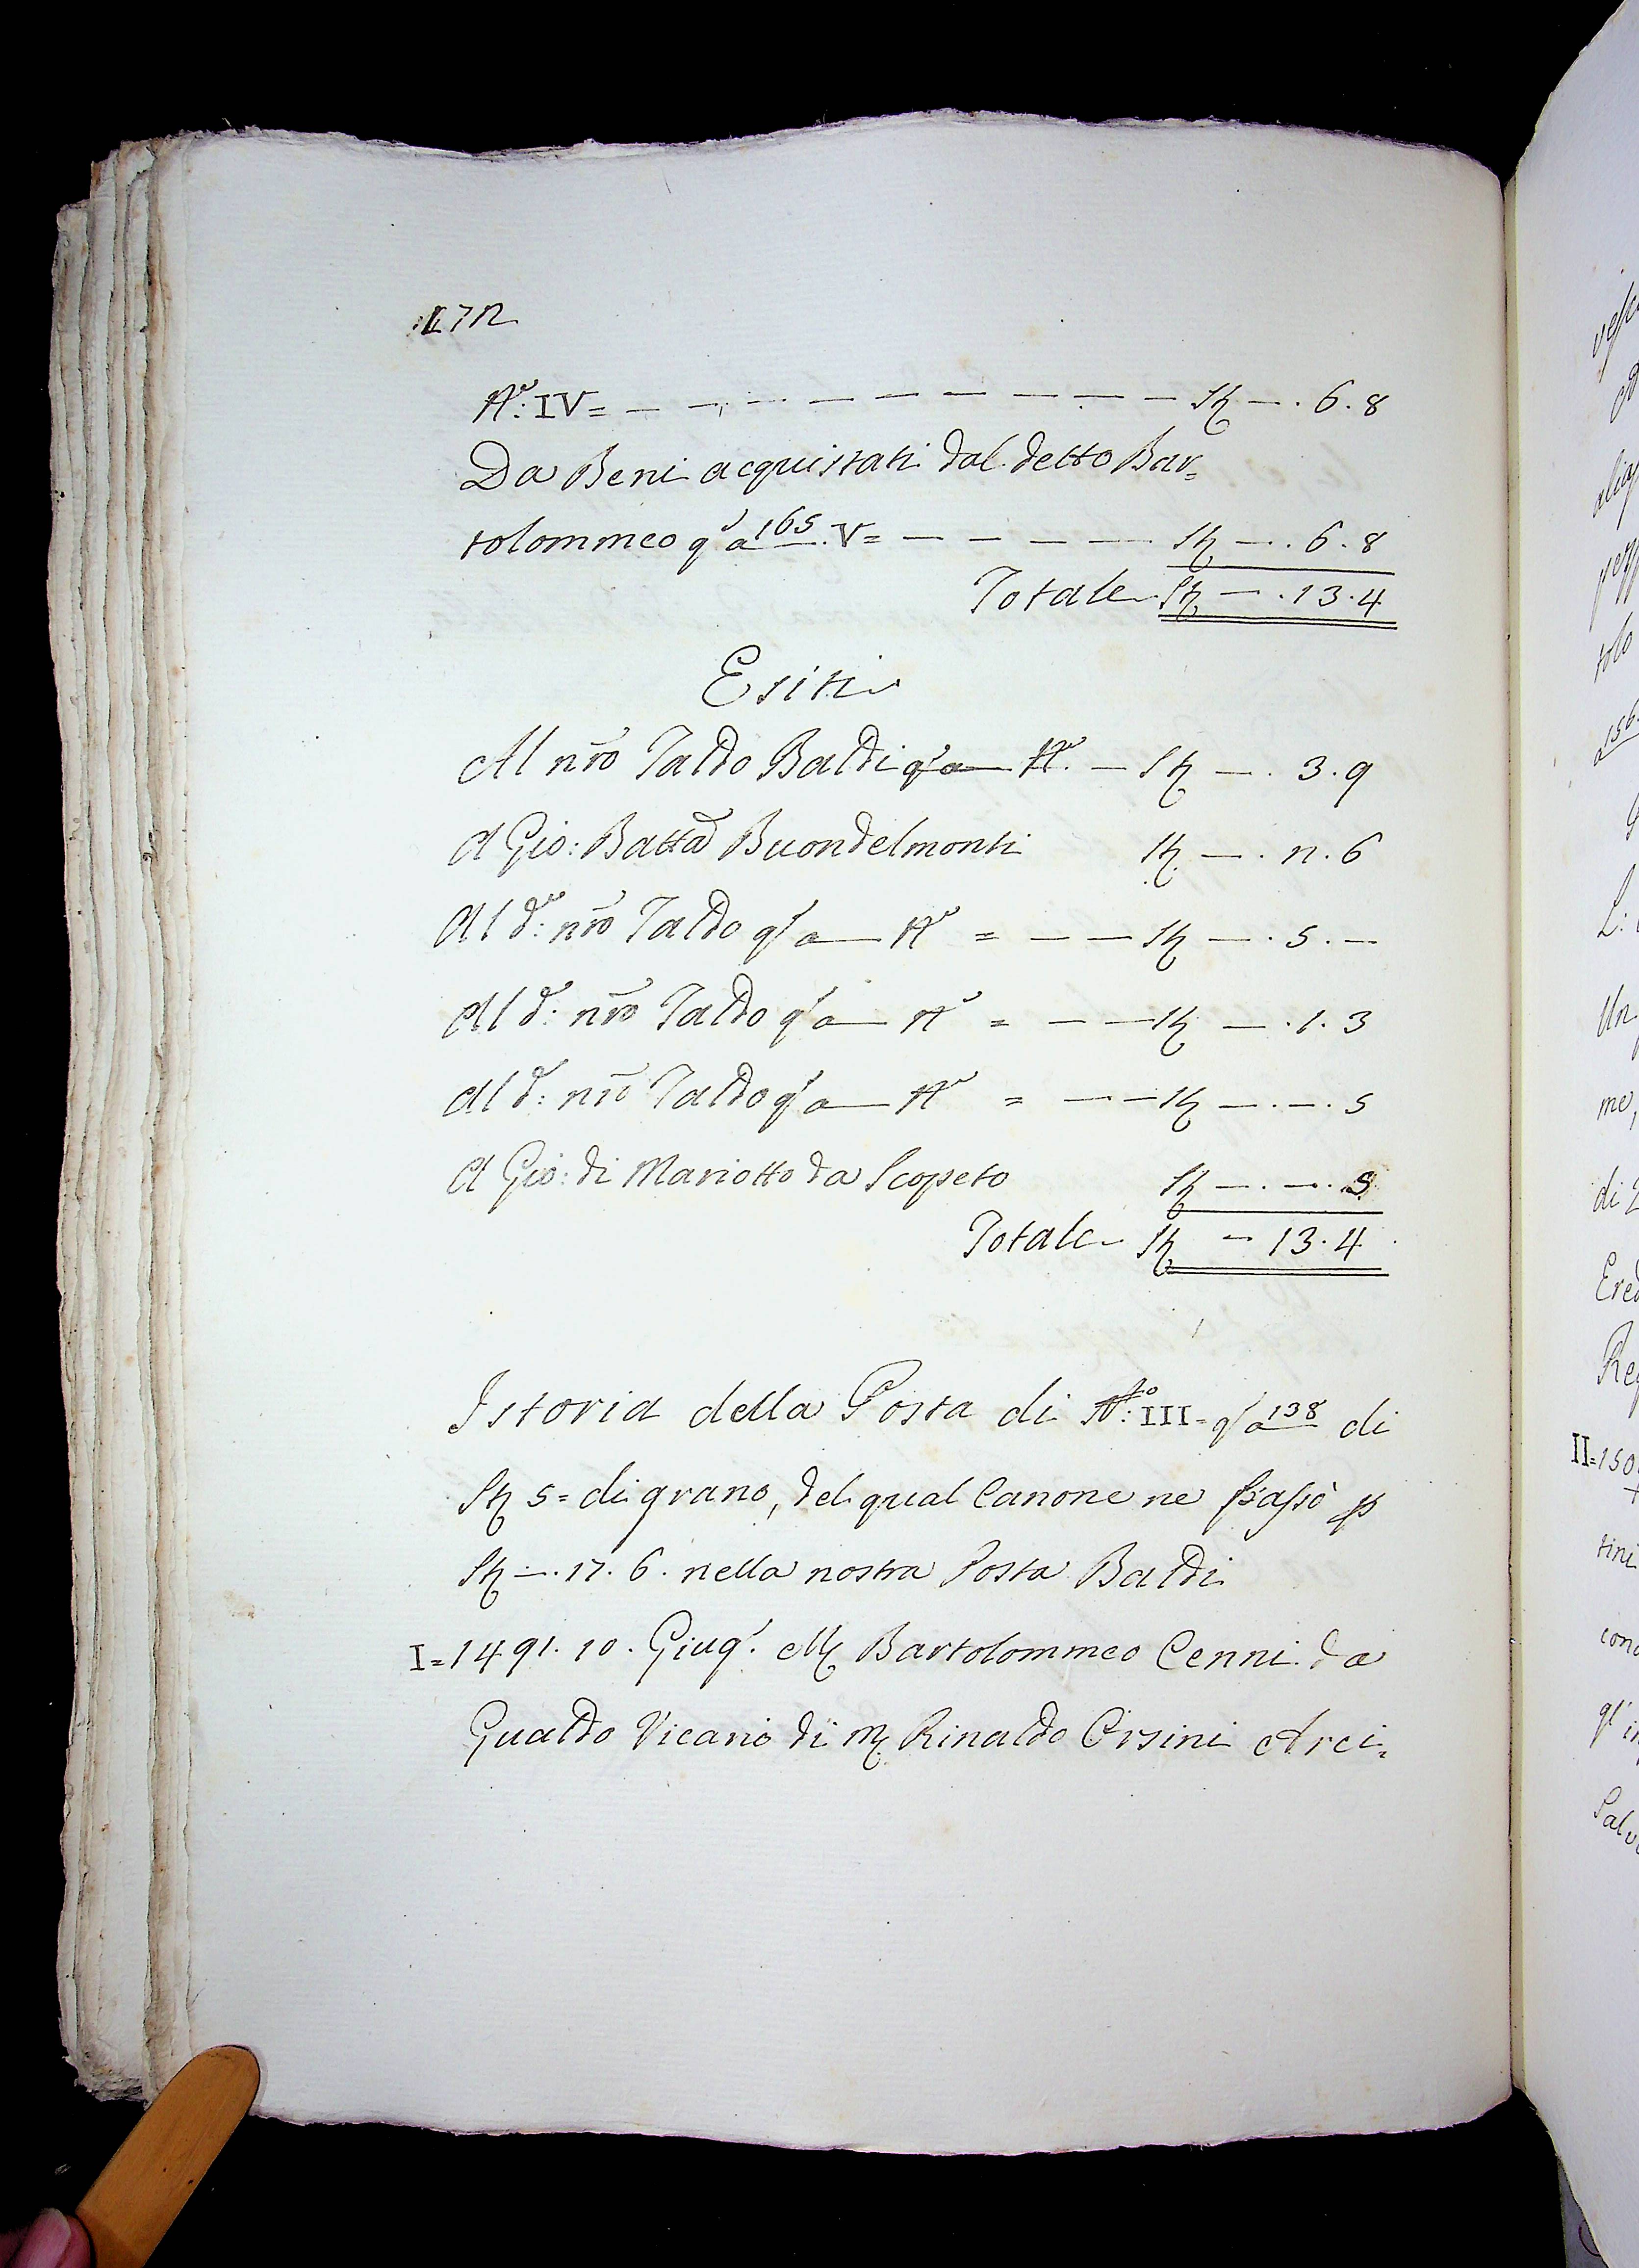 172
N.º: IV = — — — — — — — — — Sta — . 6 . 8
Da Beni acquistati dal detto Bar=
tolommeo q.º a 165 . V = — — — — Sta — . 6 . 8
Totale Sta — . 13 . 4
Esiti
Al nr̃o Taldo Baldi q.º a — N.º — Sta — . 3 . 9
A Gio: Batta Buondelmonti Sta — . 2 . 6
Al d.º: nr̃o Taldo q.º a — N.º = — — Sta — . 5 . —
Al d.º: nr̃o Taldo q.º a — N.º = — — Sta — . 1 . 3
Al d.º: nr̃o Taldo q.º a — N.º = — — Sta — . — . 5
A Gio: di Mariotto da Scopeto Sta — . — . 5
Totale Sta — 13 . 4
Istoria della Posta di N.º: III = q.º a 138 di
Sta 5 = di grano, del qual Canone ne passò p
Sta — . 17 . 6 . nella nostra Posta Baldi
I = 1491 . 10 . Giug.º M. Bartolommeo Cenni da
Gualdo Vicario di M. Rinaldo Orsini Arci=